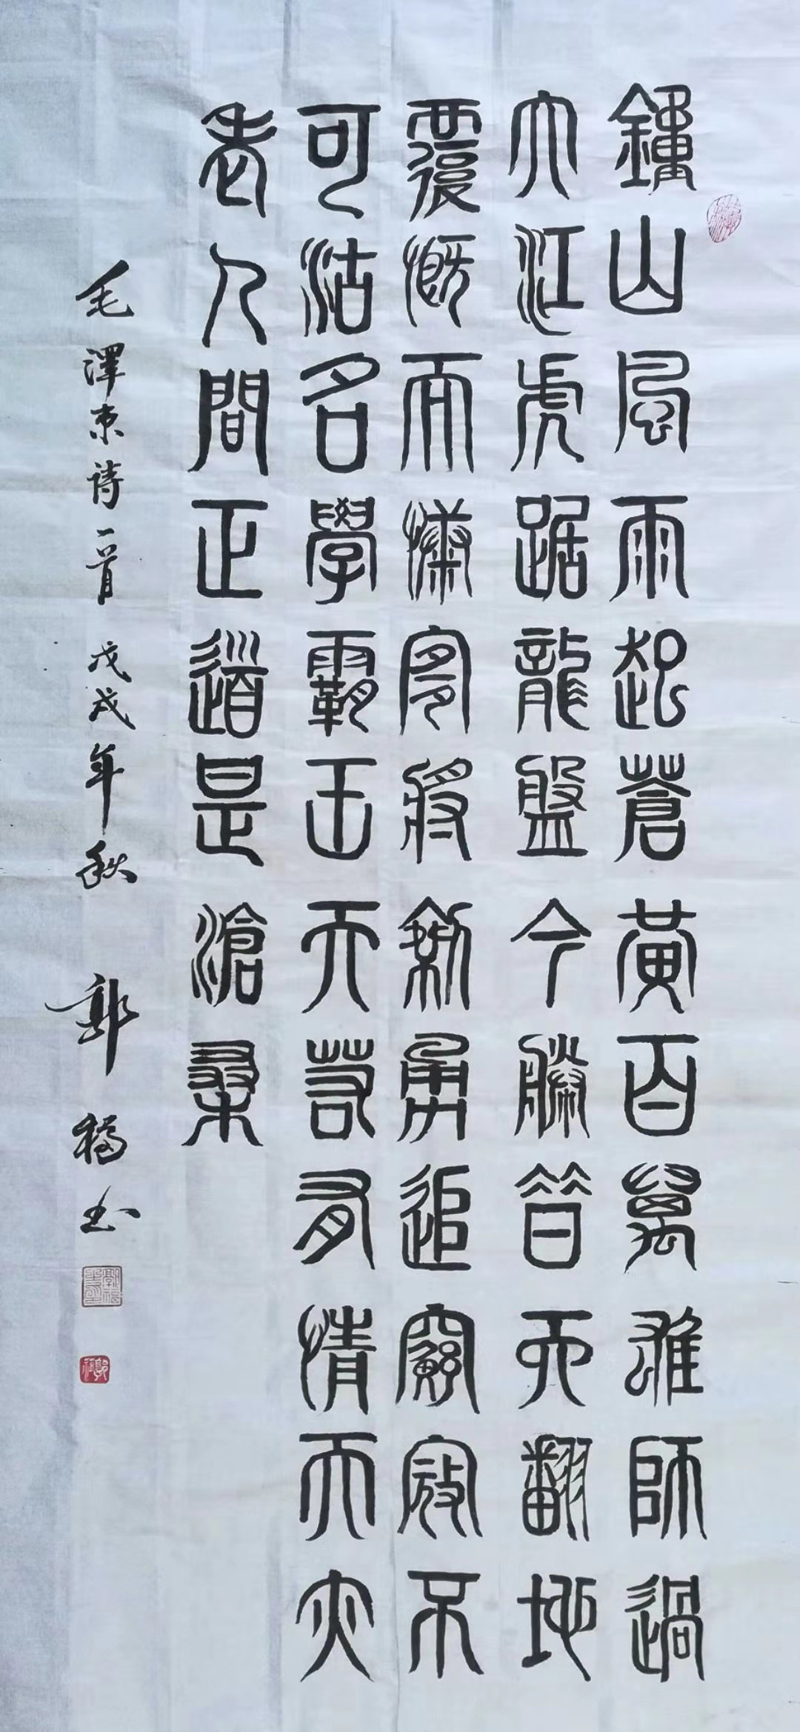 鍾山風雨起蒼黃百萬雄師過
大江虎踞龍盤今勝昔天翻地
覆慨而慷宜將剩勇追窮寇不
可沽名學霸王天若有情天亦
老人間正道是滄桑
毛澤東诗一首 戊戌年秋 郭福书